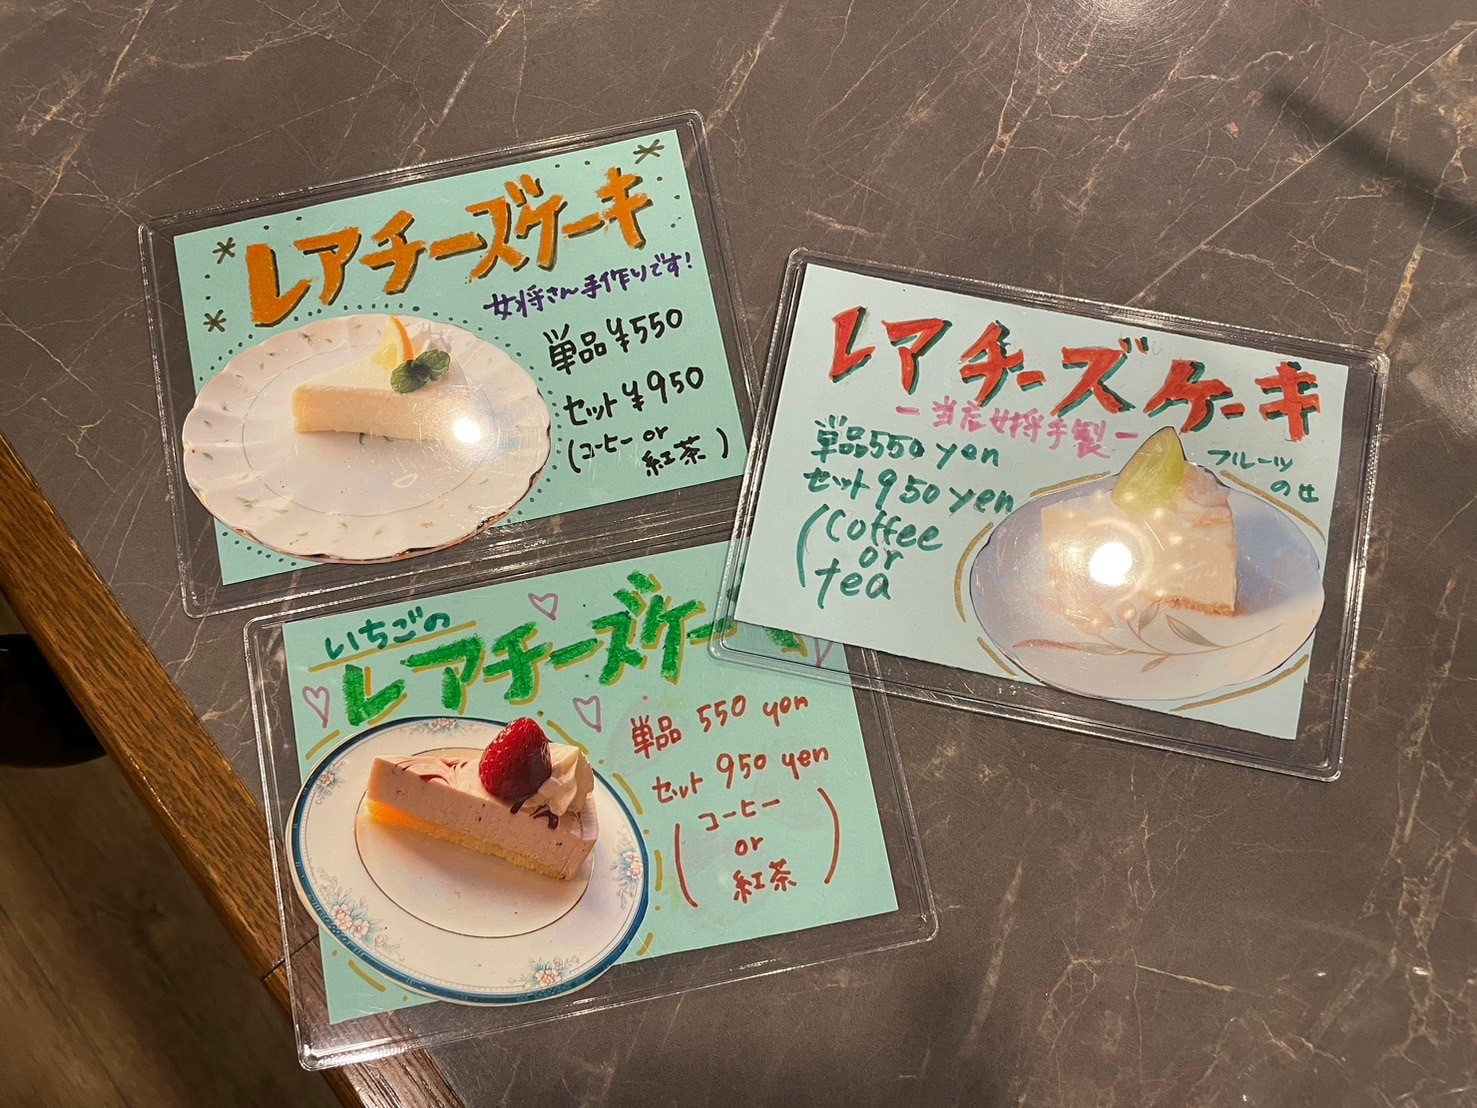 レアチーズケーキ
女将さん手作りです!
単品 ¥550
セット ¥950
(コーヒー or
紅茶)
レアチーズケーキ
ー当店女将手製ー
単品550yen
セット950yen
(Coffee
or
tea
フルーツ
のせ
いちごの
レアチーズケーキ
単品 550 yen
セット 950 yen
(コーヒー
or
紅茶)